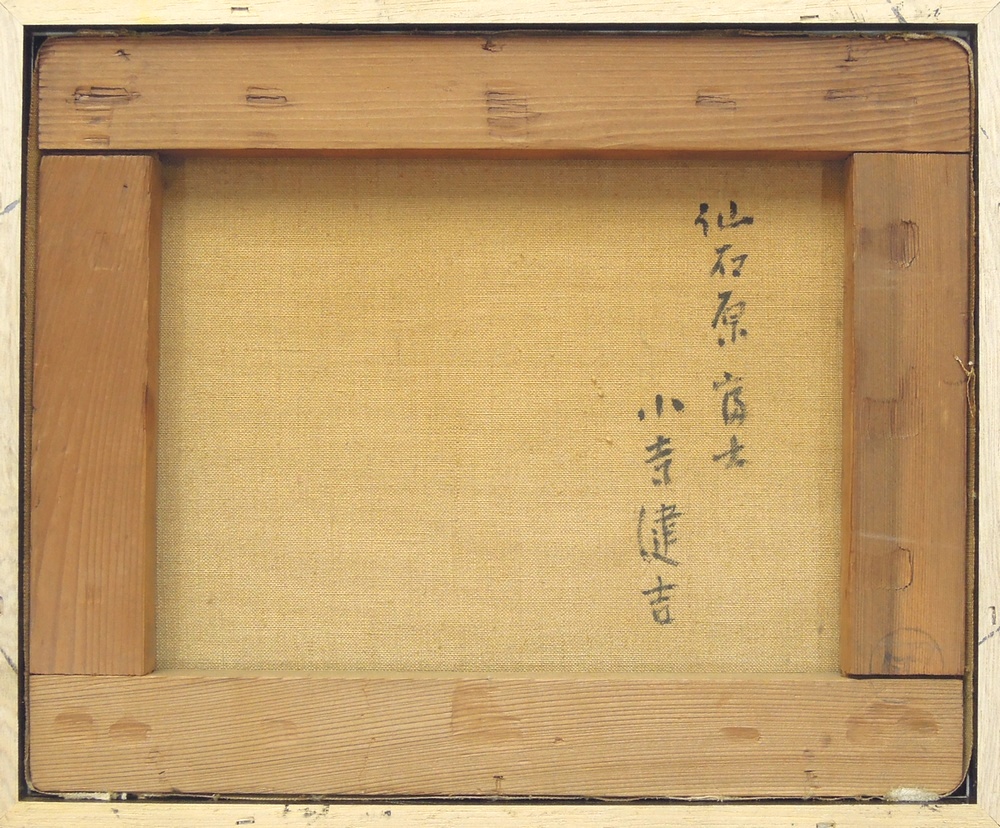 仙石原富士
小寺健吉